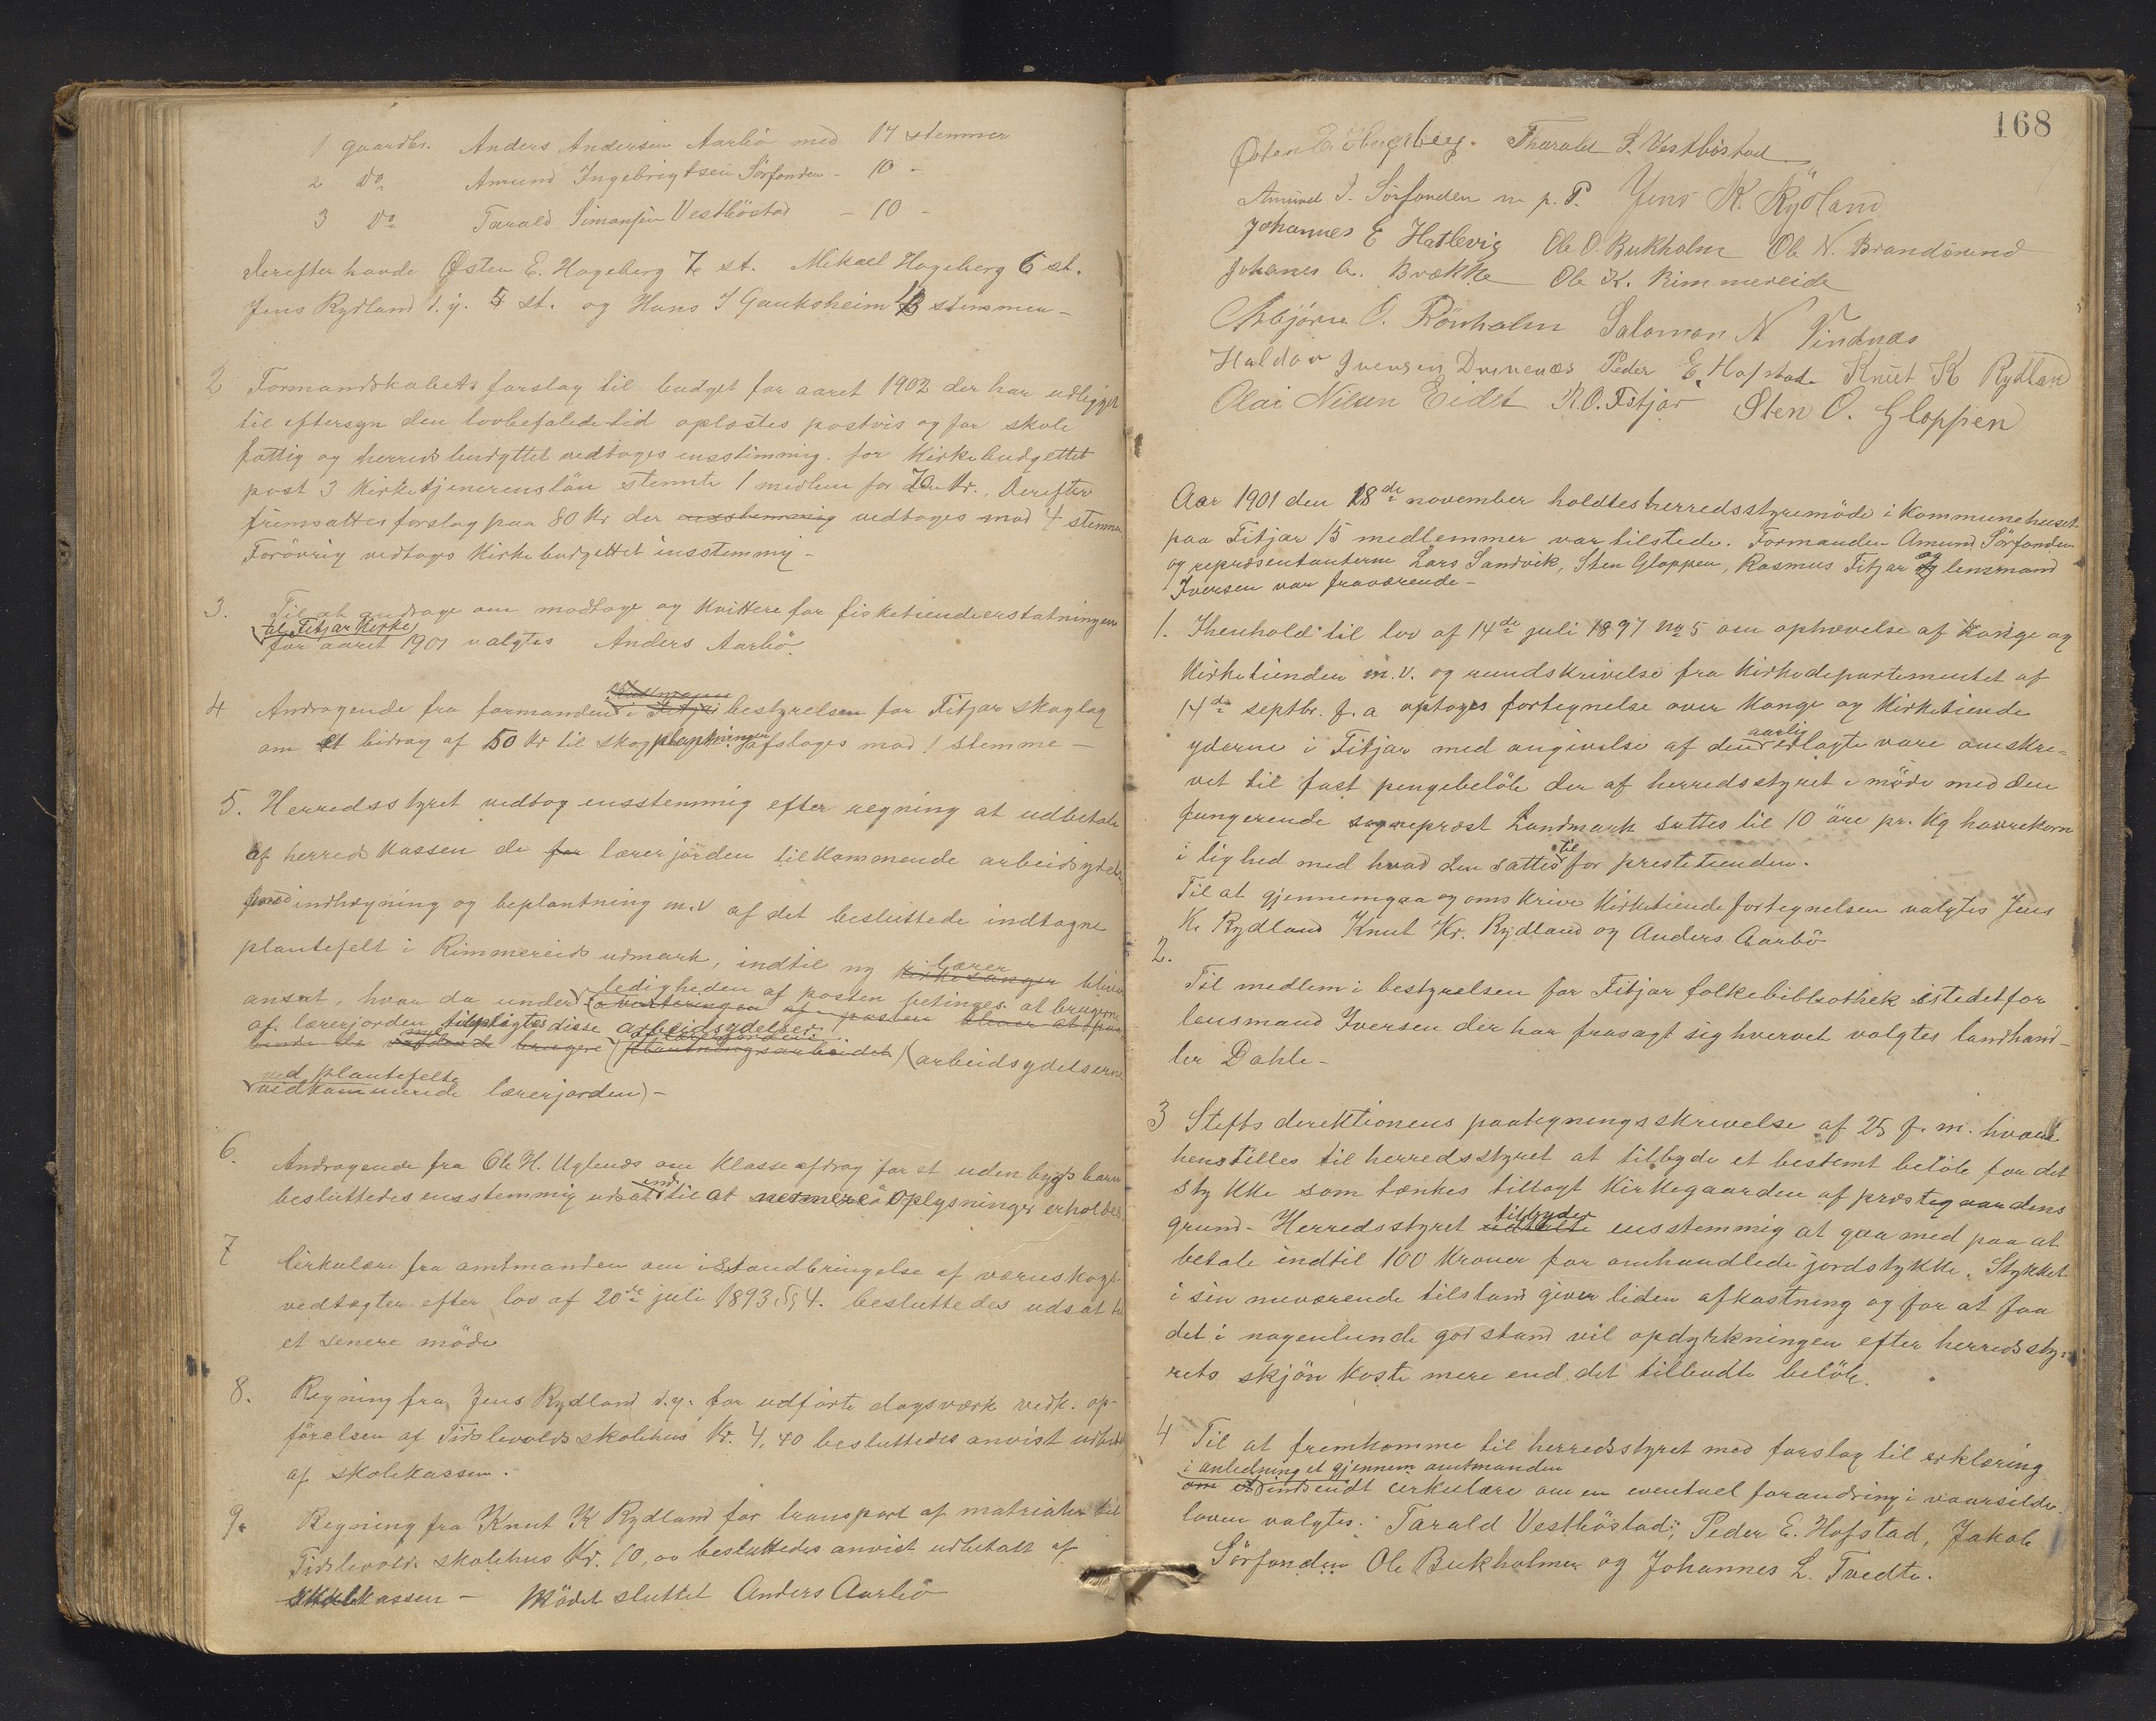 1 gaardbr. Anders Andersen Aarbö med 14 stemmer
2 do Amund Ingebrigtsen Sörfonden - 10 -
3 do Tarald Simonsen Vestböstad - 10 -
derefter havde Østen E. Hageberg 7 st. Mikael Hageberg 6 st.
Jens Rydland d.y. 5 st. og Hans J Gauksheim stemmer -
2 Formandskabets forslag til budget for aaret 1902 der har udligget
til eftersyn den lovbefalede tid oplæstes postvis og for skole
fattig og herredsbudgettet vedtoges ensstimmig. for Kirkebudgettet
post 3 Kirketjenerens lön stemte 1 medlem for 70 Kr., derefter
fremsattes forslag paa 80 Kr der ensstemmig vedtoges mod 4 stemmer
Forövrig vedtoges Kirkebudgettet ensstemmig -
3. Til at andrage om modtage og kvittere for fisketiendeerstatningen
til Fitjar Kirke
for aaret 1901 valgtes Anders Aarbö.
4 Andragende fra formanden i Fitjar bestyrelsen for Fitjar skoglag
om et bidrag af 50 Kr til skogplantningen afsloges mod 1 stemme -
5. Herredsstyret vedtog ensstemmig efter regning at udbetale
af herredskassen de for lærerjorden tilkommende arbeidsydelser
med indhegning og beplantning m.v af det besluttede indtagne
plantefelt i Rimmereids udmark, indtil ny lærer
kirkesanger bliver
ansat, hvor da under ledigheden af posten betinges at brugerne
af lærerjorden tilpligtes disse arbeidsydelser
brugere plantningsarbeidet (arbeidsydelserne
ved plantefelte
vedkommende lærerjorden) -
6. Andragende fra Ole H. Uglenes om klasseafdrag for et udenbygds barn
besluttedes ensstemmig udsat indtil at nærmere oplysninger erholdes
7 Cirkulære fra amtmanden om istandbringelse af værneskogs-
vedtægter efter lov af 20de juli 1893 § 4. besluttedes udsat til
et senere möde
8. Regning fra Jens Rydland d.y. for udförte dagsværk vedk. op-
förelsen af Tislevolds skolehus Kr. 4,40 besluttedes anvist udbetalt
af skolekassen.
9. Regning fra Knut K Rydland for transport af matrialer til
Tislevolds skolehus Kr. 10,00 besluttedes anvist udbetalt af
skolekassen - Mödet sluttet Anders Aarbö
168
Østen E. Hageberg. Tharald S. Vestböstad
Amund I. Sörfonden m. p. P. Jens K. Rydland
Johannes E Hatlevig Ole O. Bukholm Ole N. Brandösund
Johanes A. Brække Ole K. Rimmereide
Asbjörn O. Rönholm Salomon N Vindnæs
Haldor Iversen Drevenæs Peder E. Hofstad Knut K Rydland
Olai Nilsen Eidt R.O. Fitjar Sten O. Gloppen
Aar 1901 den 18de november holdtes herredsstyremöde i Kommunehuset
paa Fitjar 15 medlemmer var tilstede. Formanden Amund Sörfonden
og repræsentanterne Lars Sandvik, Sten Gloppen, Rasmus Fitjar og lensmand
Iversen var fraværende -
1. I henhold til lov af 14de juli 1897 No 5 om ophævelse af Konge og
Kirketienden m.v. og rundskrivelse fra Kirkedepartementet af
14de septbr. f.a optoges fortegnelse over Konge og Kirketiende
yderne i Fitjar med angivelse af den aarlig erlagte vare omskre-
vet til fast pengebelöb der af herredsstyret i möde med den
fungerende sognepræst Landmark sattes til 10 öre pr. Kg havrekorn
i lighed med hvad den sattes til for prestetienden.
Til at gjennemgaa og omskrive Kirketiendefortegnelsen valgtes Jens
K. Rydland Knut Kr. Rydland og Anders Aarbö
2.
Til medlem i bestyrelsen for Fitjar folkebibliothek istedetfor
lensmand Iversen der har frasagt sig hvervet valgtes landhand-
ler Dahle -
3 Stiftsdirektionens paategningsskrivelse af 25 f. m. hvori
henstilles til herredsstyret at tilbyde et bestemt belöb for det
stykke som tænkes tillagt Kirkegaarden af præstegaardens
grund - Herredsstyret tilbyder udtalte ensstemmig at gaa med paa at
betale indtil 100 Kroner for omhandlede jordstykke. Stykket
i sin nuværende tilstand giver liden afkastning og for at faa
det i nogenlunde god stand vil opdyrkningen efter herredssty-
rets skjön koste mere end det tilbudte belöb.
4 Til at fremkomme til herredsstyret med forslag til erklæring
i anledning et gjennem amtmanden
om et indsendt cirkulære om en eventuel forandring i vaarsilde-
loven valgtes: Tarald Vestböstad, Peder E. Hofstad, Jakob
Sörfonden Ole Bukholmen og Johannes L. Tvedte.